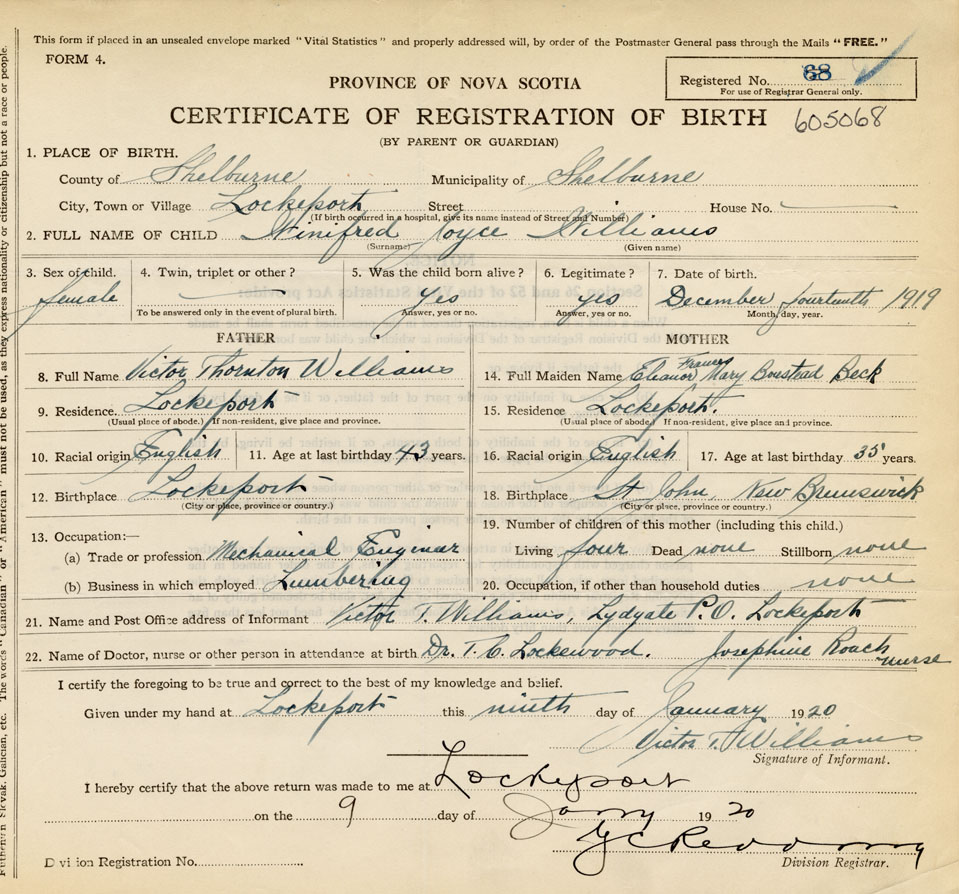 This form if placed in an unsealed envelope marked "Vital Statistics" and properly addressed will, by order of the Postmaster General pass through the Mails "FREE."
FORM 4.
Registered No. 68
For use of Registrar General only.
PROVINCE OF NOVA SCOTIA
CERTIFICATE OF REGISTRATION OF BIRTH 605068
(BY PARENT OR GUARDIAN)
1. PLACE OF BIRTH.
County of Shelburne Municipality of Shelburne
City, Town or Village Lockeport Street House No.
(If birth occurred in a hospital, give its name instead of Street and Number)
2. FULL NAME OF CHILD Winifred Joyce Williams
(Surname) (Given name)
3. Sex of child. 4. Twin, triplet or other? 5. Was the child born alive? 6. Legitimate? 7. Date of birth.
female Yes yes December fourteenth 1919
To be answered only in the event of plural birth. Answer, yes or no. Answer, yes or no. Month, day, year.
FATHER MOTHER
8. Full Name Victor Thornton Williams 14. Full Maiden Name Eleanor Frances Mary Boustead Beck
9. Residence. Lockeport 15. Residence Lockeport.
(Usual place of abode.) If non-resident, give place and province. (Usual place of abode.) If non-resident, give place and province.
10. Racial origin English 11. Age at last birthday 43 years. 16. Racial origin English 17. Age at last birthday 35 years.
12. Birthplace Lockeport 18. Birthplace St John, New Brunswick
(City or place, province or country.) (City or place, province or country.)
13. Occupation:— 19. Number of children of this mother (including this child.)
(a) Trade or profession Mechanical Enginer Living four Dead none Stillborn none
(b) Business in which employed Lumbering 20. Occupation, if other than household duties none
21. Name and Post Office address of Informant Victor T. Williams, Lydgate P.O. Lockeport
22. Name of Doctor, nurse or other person in attendance at birth Dr. T. C. Lockewood. Josephine Roach nurse
I certify the foregoing to be true and correct to the best of my knowledge and belief.
Given under my hand at Lockeport this ninth day of January 1920
Victor T. Williams
Signature of Informant.
I hereby certify that the above return was made to me at Lockeport
on the 9 day of Jany 1920
Division Registrar.
Division Registration No.